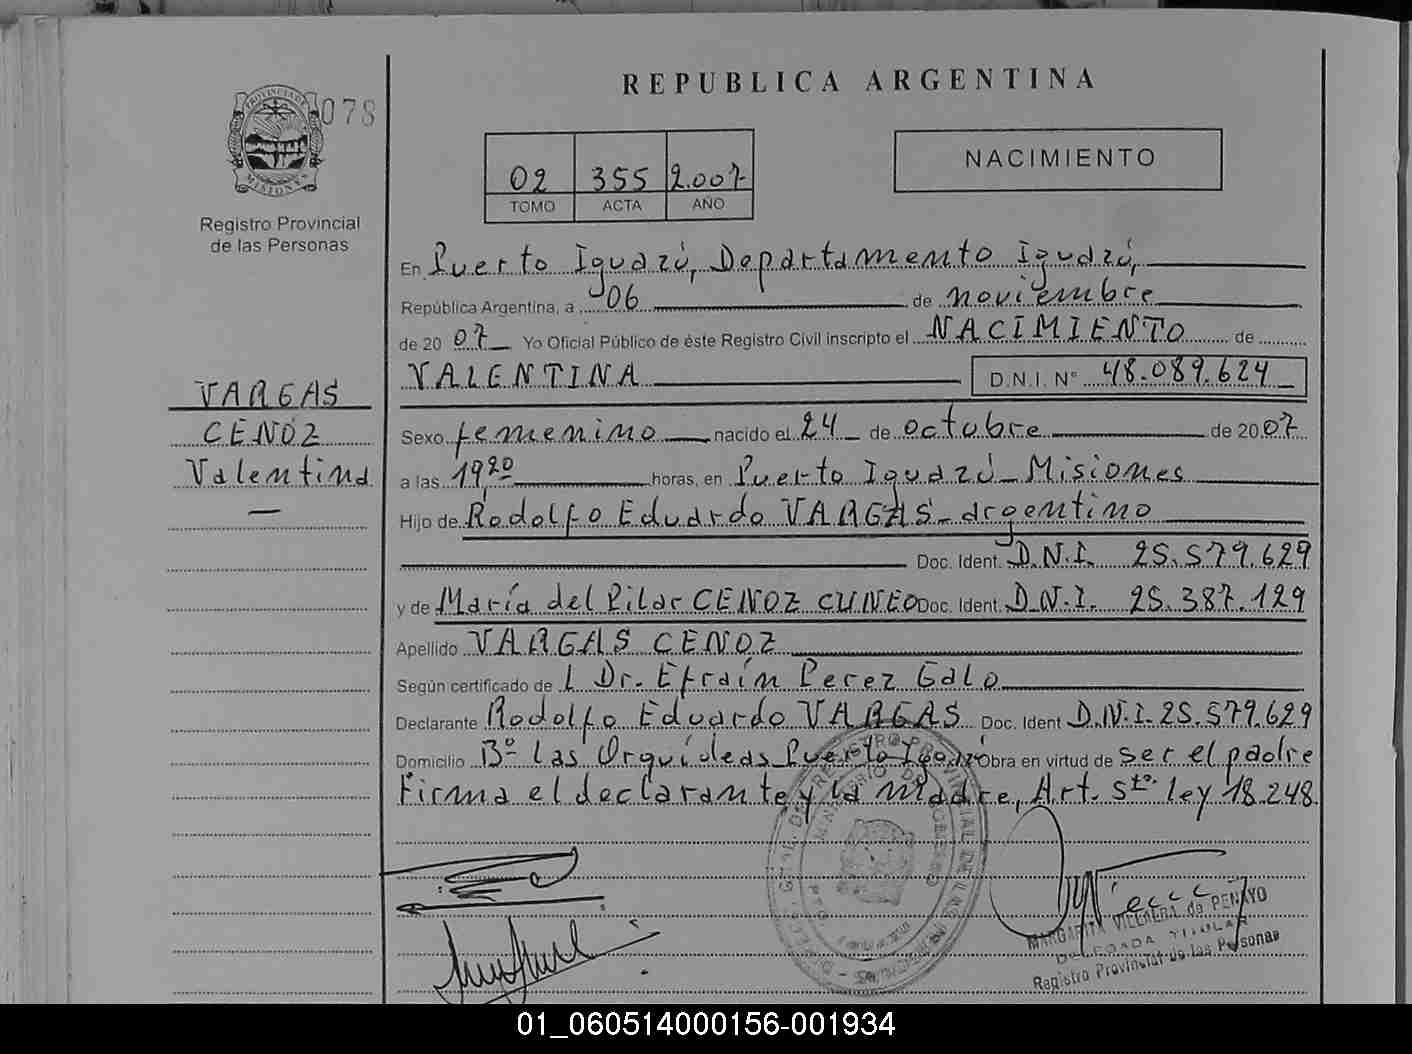 REPUBLICA ARGENTINA
PROVINCIA DE
MISIONES
078
Registro Provincial
de las Personas
02 355 2.007
TOMO ACTA AÑO
NACIMIENTO
En Puerto Iguazú, Departamento Iguazú,
República Argentina, a 06 de noviembre
de 20 07 Yo Oficial Público de éste Registro Civil inscripto el NACIMIENTO de
VALENTINA D.N.I. N° 48.089.624
VARGAS
CENOZ
Valentina
Sexo femenino nacido el 24 de octubre de 2007
a las 19,20 horas, en Puerto Iguazú - Misiones
Hijo de Rodolfo Eduardo VARGAS - argentino
Doc. Ident. D.N.I. 25.579.629
y de María del Pilar CENOZ CUNEO Doc. Ident. D.N.I. 25.387.129
Apellido VARGAS CENOZ
Según certificado de L Dr. Efraín Perez Galo
Declarante Rodolfo Eduardo VARGAS Doc. Ident D.N.I. 25.579.629
Domicilio B° Las Orquídeas Puerto Iguazú Obra en virtud de ser el padre
Firma el declarante y la madre, Art. 5to. ley 18.248
MARGARITA VILLALBA de PENAYO
DELEGADA TITULAR
Registro Provincial de las Personas
01_060514000156-001934